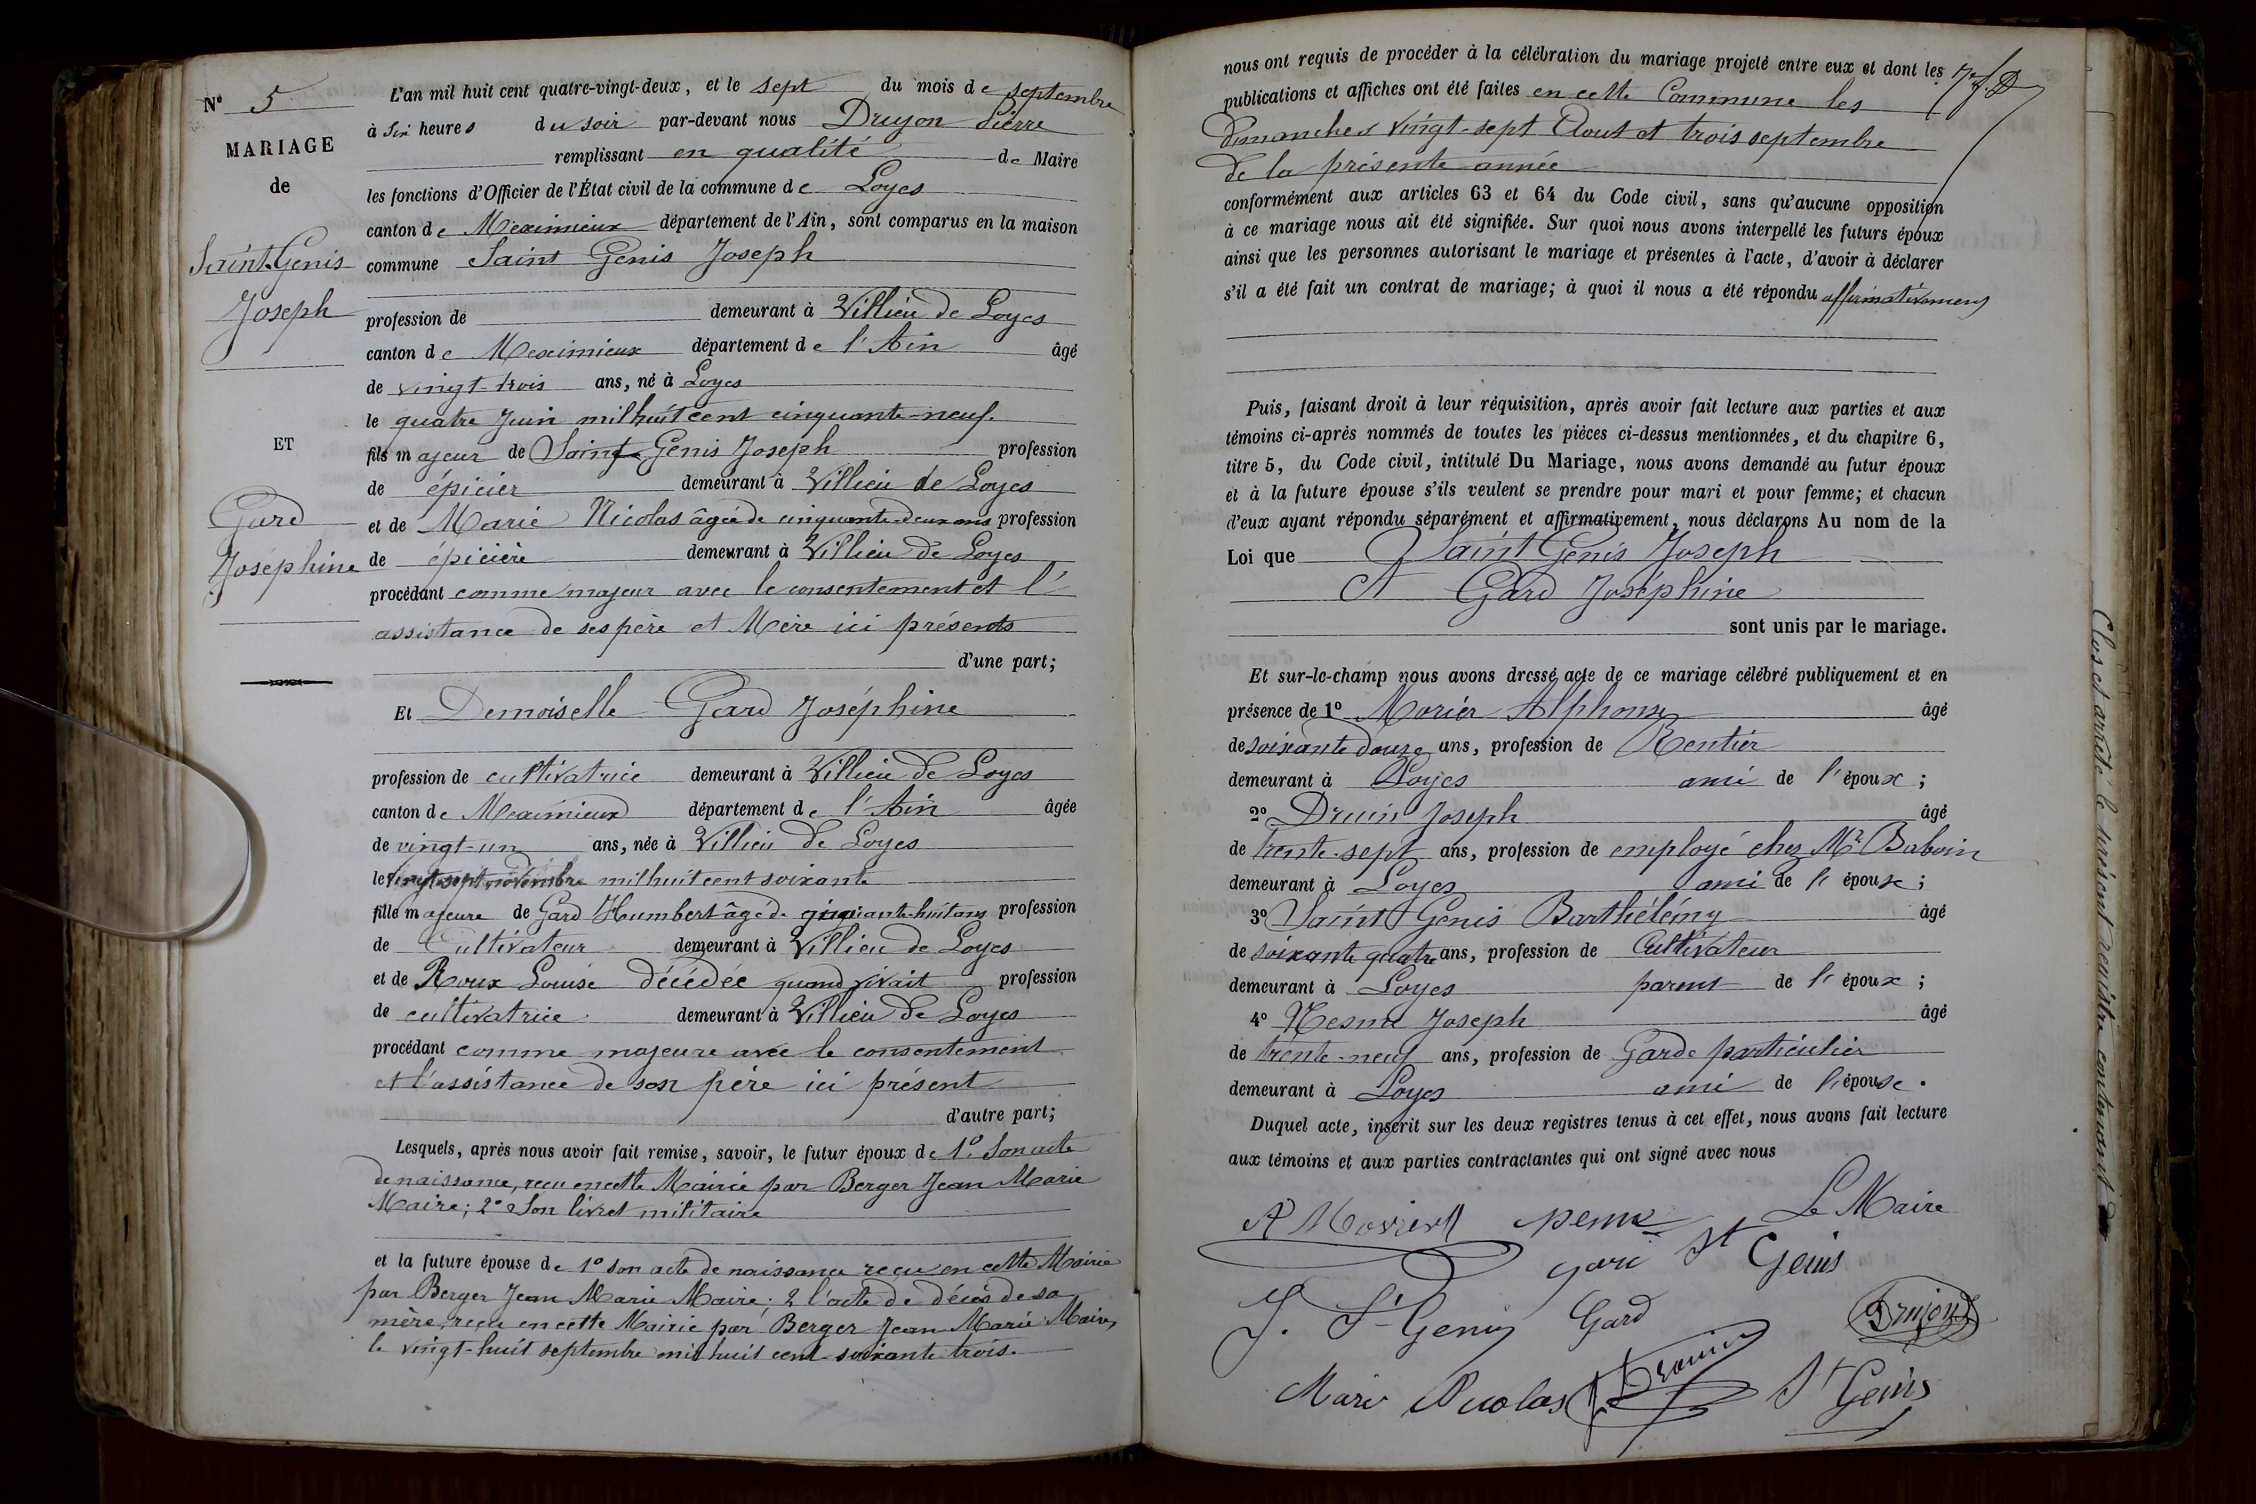 N° 5
MARIAGE
de
Saint Genis
Joseph
ET
Gard
Joséphine
L'an mil huit cent quatre-vingt-deux, et le sept du mois de septembre
à Six heures du soir par-devant nous Drujon Pierre
remplissant en qualité de Maire
les fonctions d'Officier de l'État civil de la commune de Loyes
canton de Meximieux département de l'Ain, sont comparus en la maison
commune Saint Genis Joseph
profession de demeurant à Villieu de Loyes
canton de Meximieux département de l'Ain âgé
de vingt-trois ans, né à Loyes
le quatre Juin mil huit cent cinquante-neuf
fils majeur de Saint Genis Joseph profession
de épicier demeurant à Villieu de Loyes
et de Marie Nicolas âgée de cinquante-deux ans profession
de épicière demeurant à Villieu de Loyes
procédant comme majeur avec le consentement et l'
assistance de ses père et Mère ici présents
d'une part;
Et Demoiselle Gard Joséphine
profession de cultivatrice demeurant à Villieu de Loyes
canton de Meximieux département de l'Ain âgée
de vingt-un ans, née à Villieu de Loyes
le vingt-sept novembre mil huit cent soixante
fille majeure de Gard Humbert âgé de cinquante-huit ans profession
de Cultivateur demeurant à Villieu de Loyes
et de Roux Louise décédée quand vivait profession
de cultivatrice demeurant à Villieu de Loyes
procédant comme majeure avec le consentement
et l'assistance de son père ici présent
d'autre part;
Lesquels, après nous avoir fait remise, savoir, le futur époux de 1° Son acte
de naissance, reçu en cette Mairie par Berger Jean Marie
Maire; 2° Son livret militaire
et la future épouse de 1° son acte de naissance reçu en cette Mairie
par Berger Jean Marie Maire; 2 l'acte de décès de sa
mère, reçu en cette Mairie par Berger Jean Marie Maire,
le vingt-huit septembre mil huit cent soixante trois.
nous ont requis de procéder à la célébration du mariage projeté entre eux et dont les
publications et affiches ont été faites en cette Commune les
dimanches vingt-sept Aout et trois septembre
de la présente année
conformément aux articles 63 et 64 du Code civil, sans qu'aucune opposition
à ce mariage nous ait été signifiée. Sur quoi nous avons interpellé les futurs époux
ainsi que les personnes autorisant le mariage et présentes à l'acte, d'avoir à déclarer
s'il a été fait un contrat de mariage; à quoi il nous a été répondu affirmativement
Puis, faisant droit à leur réquisition, après avoir fait lecture aux parties et aux
témoins ci-après nommés de toutes les pièces ci-dessus mentionnées, et du chapitre 6,
titre 5, du Code civil, intitulé Du Mariage, nous avons demandé au futur époux
et à la future épouse s'ils veulent se prendre pour mari et pour femme; et chacun
d'eux ayant répondu séparément et affirmativement, nous déclarons Au nom de la
Loi que Saint Genis Joseph
et Gard Joséphine
sont unis par le mariage.
Et sur-le-champ nous avons dressé acte de ce mariage célébré publiquement et en
présence de 1° Morier Alphonse âgé
de soixante douze ans, profession de Rentier
demeurant à Loyes ami de l'époux;
2° Druin Joseph âgé
de trente-sept ans, profession de employé chez Mr Baboin
demeurant à Loyes ami de l'épouse;
3° Saint Genis Barthélémy âgé
de soixante quatre ans, profession de Cultivateur
demeurant à Loyes parent de l'époux;
4° Nesme Joseph âgé
de trente-neuf ans, profession de Garde particulier
demeurant à Loyes ami de l'épouse.
Duquel acte, inscrit sur les deux registres tenus à cet effet, nous avons fait lecture
aux témoins et aux parties contractantes qui ont signé avec nous
Le Maire
St Genis
J. St Genis Gard Drujon
Marie Nicolas St Genis
Clos et arrêté le présent registre contenant